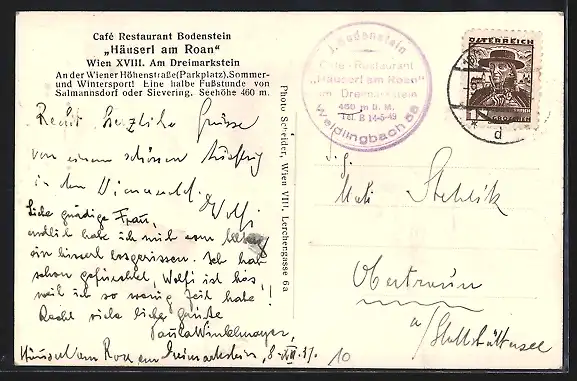 Café Restaurant Bodenstein
„Häuserl am Roan"
Wien XVIII. Am Dreimarkstein
An der Wiener Höhenstraße(Parkplatz).Sommer-
und Wintersport! Eine halbe Fußstunde von
Salmannsdorf oder Sievering. Seehöhe 460 m.
Recht herzliche Grüsse
von einem schönen Ausflug
in den Wienerwald.
Wolfi
Liebe gnädige Frau,
endlich habe ich mich
ein bisserl losgerissen. Ich hab
schon gefürchtet, Wolfi ist bös,
weil ich so wenig Zeit habe!
Recht viele liebe Grüsse
Paula Winkelmayer,
Häuserl am Roan am Dreimarkstein, 8. VIII. 37.
10
Photo Schreider, Wien VIII, Lerchengasse 6a
J. Bodenstein
Café-Restaurant
„Häuserl am Roan"
am Dreimarkstein
460 m ü. M.
Tel. B 14-5-49
Weidlingbach 58
ÖSTERREICH
GROSCHEN
d
Stehlik
Obertraun
a/Hallstättersee